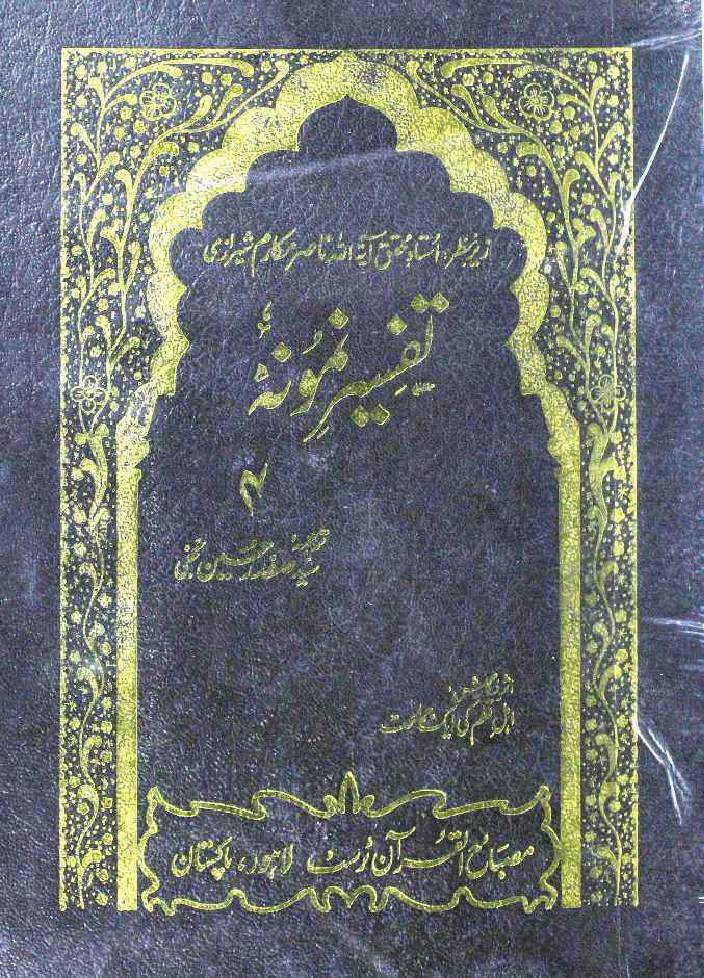 زیرِ نظر: اُستاد محقق آیۃ اللہ ناصر مکارم شیرازی
تفسیرِ نمُونہ
ترجمہ
سید صفدر حسین نجفی
اہلِ قلم کی ایک
مصباح القرآن ٹرسٹ لاہور، پاکستان